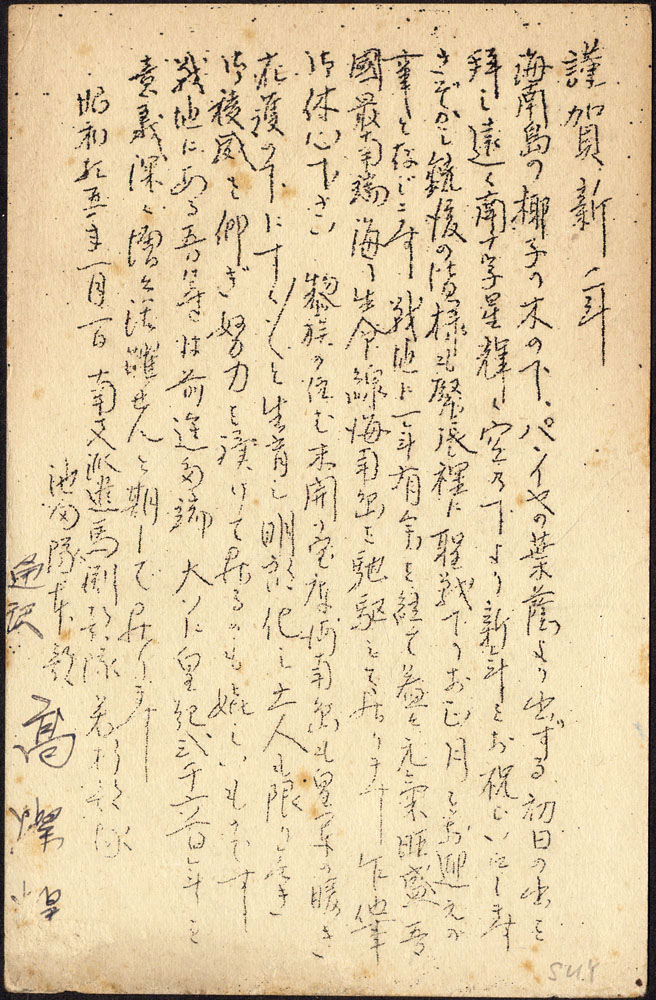 謹賀新年
海南島の椰子の木の下、パンヤの葉蔭より出ずる初日の出を
拝し遠く南十字星輝く空の下より新年をお祝ひいたします
さぞかし銃後の皆様も緊張裡に聖戦下のお正月を御迎えの
事と存じます 戦地に一年有余を経て益々元気旺盛吾
國最南端海の生命線海南島を馳駆して居ります 乍他事
御休心下さい 黎族の住む未開の宝庫海南島も皇軍の暖き
庇護の下にすく〱と生育し明朗化し土人も限り無き
御稜威を仰ぎ努力を続けて居るのも嬉しいものです
戦地にある吾等は前途多端 大いに皇紀弐千六百年を
意義深く増々活躍せんと期して居ります
昭和十五年一月一日 南支派遣馬淵部隊 若杉部隊
池畑隊本部
通訳 高燦煌
SU4